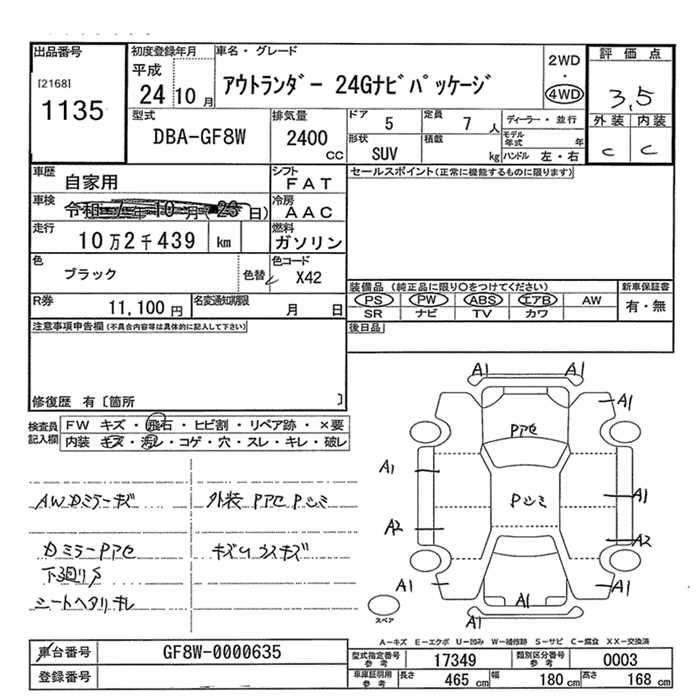 出品番号
[2168]
1135
初度登録年月
平成
24 10 月
車名・グレード
アウトランダー 24Gナビパッケージ
2WD
・
4WD
評価点
3.5
外装 内装
C C
型式
DBA-GF8W
排気量
2400
CC
ドア 5
定員 7 人
形状 SUV
積載 kg
ディーラー・並行
モデル年式 年
ハンドル 左・右
車歴 自家用
シフト FAT
車検
冷房 AAC
走行 10万2千439 km
燃料 ガソリン
色 ブラック
色替
色コード X42
R券 11,100 円
名変通知期限 月 日
セールスポイント(正常に機能するものに限ります)
装備品 (純正品に限り〇をつけてください)
PS PW ABS エアB AW
SR ナビ TV カワ
新車保証書
有・無
後日品
注意事項申告欄(不具合内容等は具体的に記入して下さい)
修復歴 有〔箇所 〕
検査員記入欄
FW キズ・飛石・ヒビ割・リペア跡・×要
内装 キズ・汚レ・コゲ・穴・スレ・キレ・破レ
AWDミラーキズ
外装 Pアセ Pシミ
DミラーPアセ
キズUコスキズ
下廻りS
シートヘタリキレ
A1 A1
A1 A1
Pアセ
A1 Pシミ A1
A2 A2
A1 A1 A1
A1
スペア
A-キズ E-エクボ U-凹み W-補修跡 S-サビ C-腐食 XX-交換済
車台番号 GF8W-0000635
登録番号
型式指定番号 参考 17349
類別区分番号 参考 0003
車庫証明用 参考 長さ 465 cm 幅 180 cm 高さ 168 cm